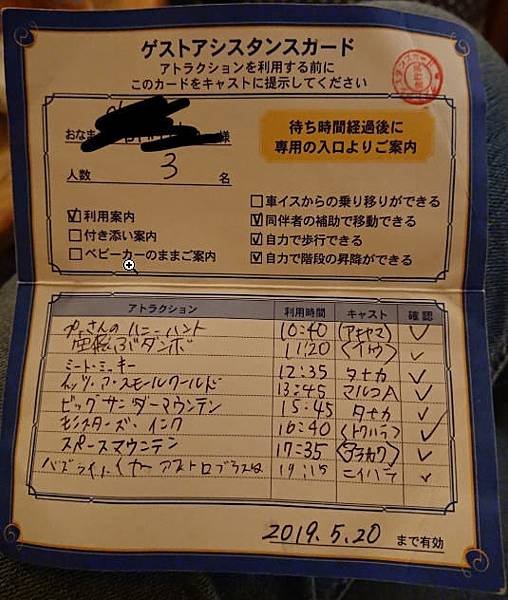 ゲストアシスタンスカード
アトラクションを利用する前に
このカードをキャストに提示してください
おなま 様
人数 3 名
待ち時間経過後に
専用の入口よりご案内
☑利用案内
□付き添い案内
□ベビーカーのままご案内
□車イスからの乗り移りができる
☑同伴者の補助で移動できる
☑自力で歩行できる
☑自力で階段の昇降ができる
アトラクション 利用時間 キャスト 確認
プーさんのハニーハント 10:40 (アキヤマ) ✓
空飛ぶダンボ 11:20 ✓
ミート・ミッキー 12:35 タナカ ✓
イッツ・ア・スモールワールド 13:45 マルコA ✓
ビッグサンダーマウンテン 15:45 タナカ ✓
モンスターズ・インク 16:40 (トクハラ) ✓
スペースマウンテン 17:35 ✓
バズライトイヤー アストロブラスター 19:15 ニイハラ ✓
2019.5.20 まで有効